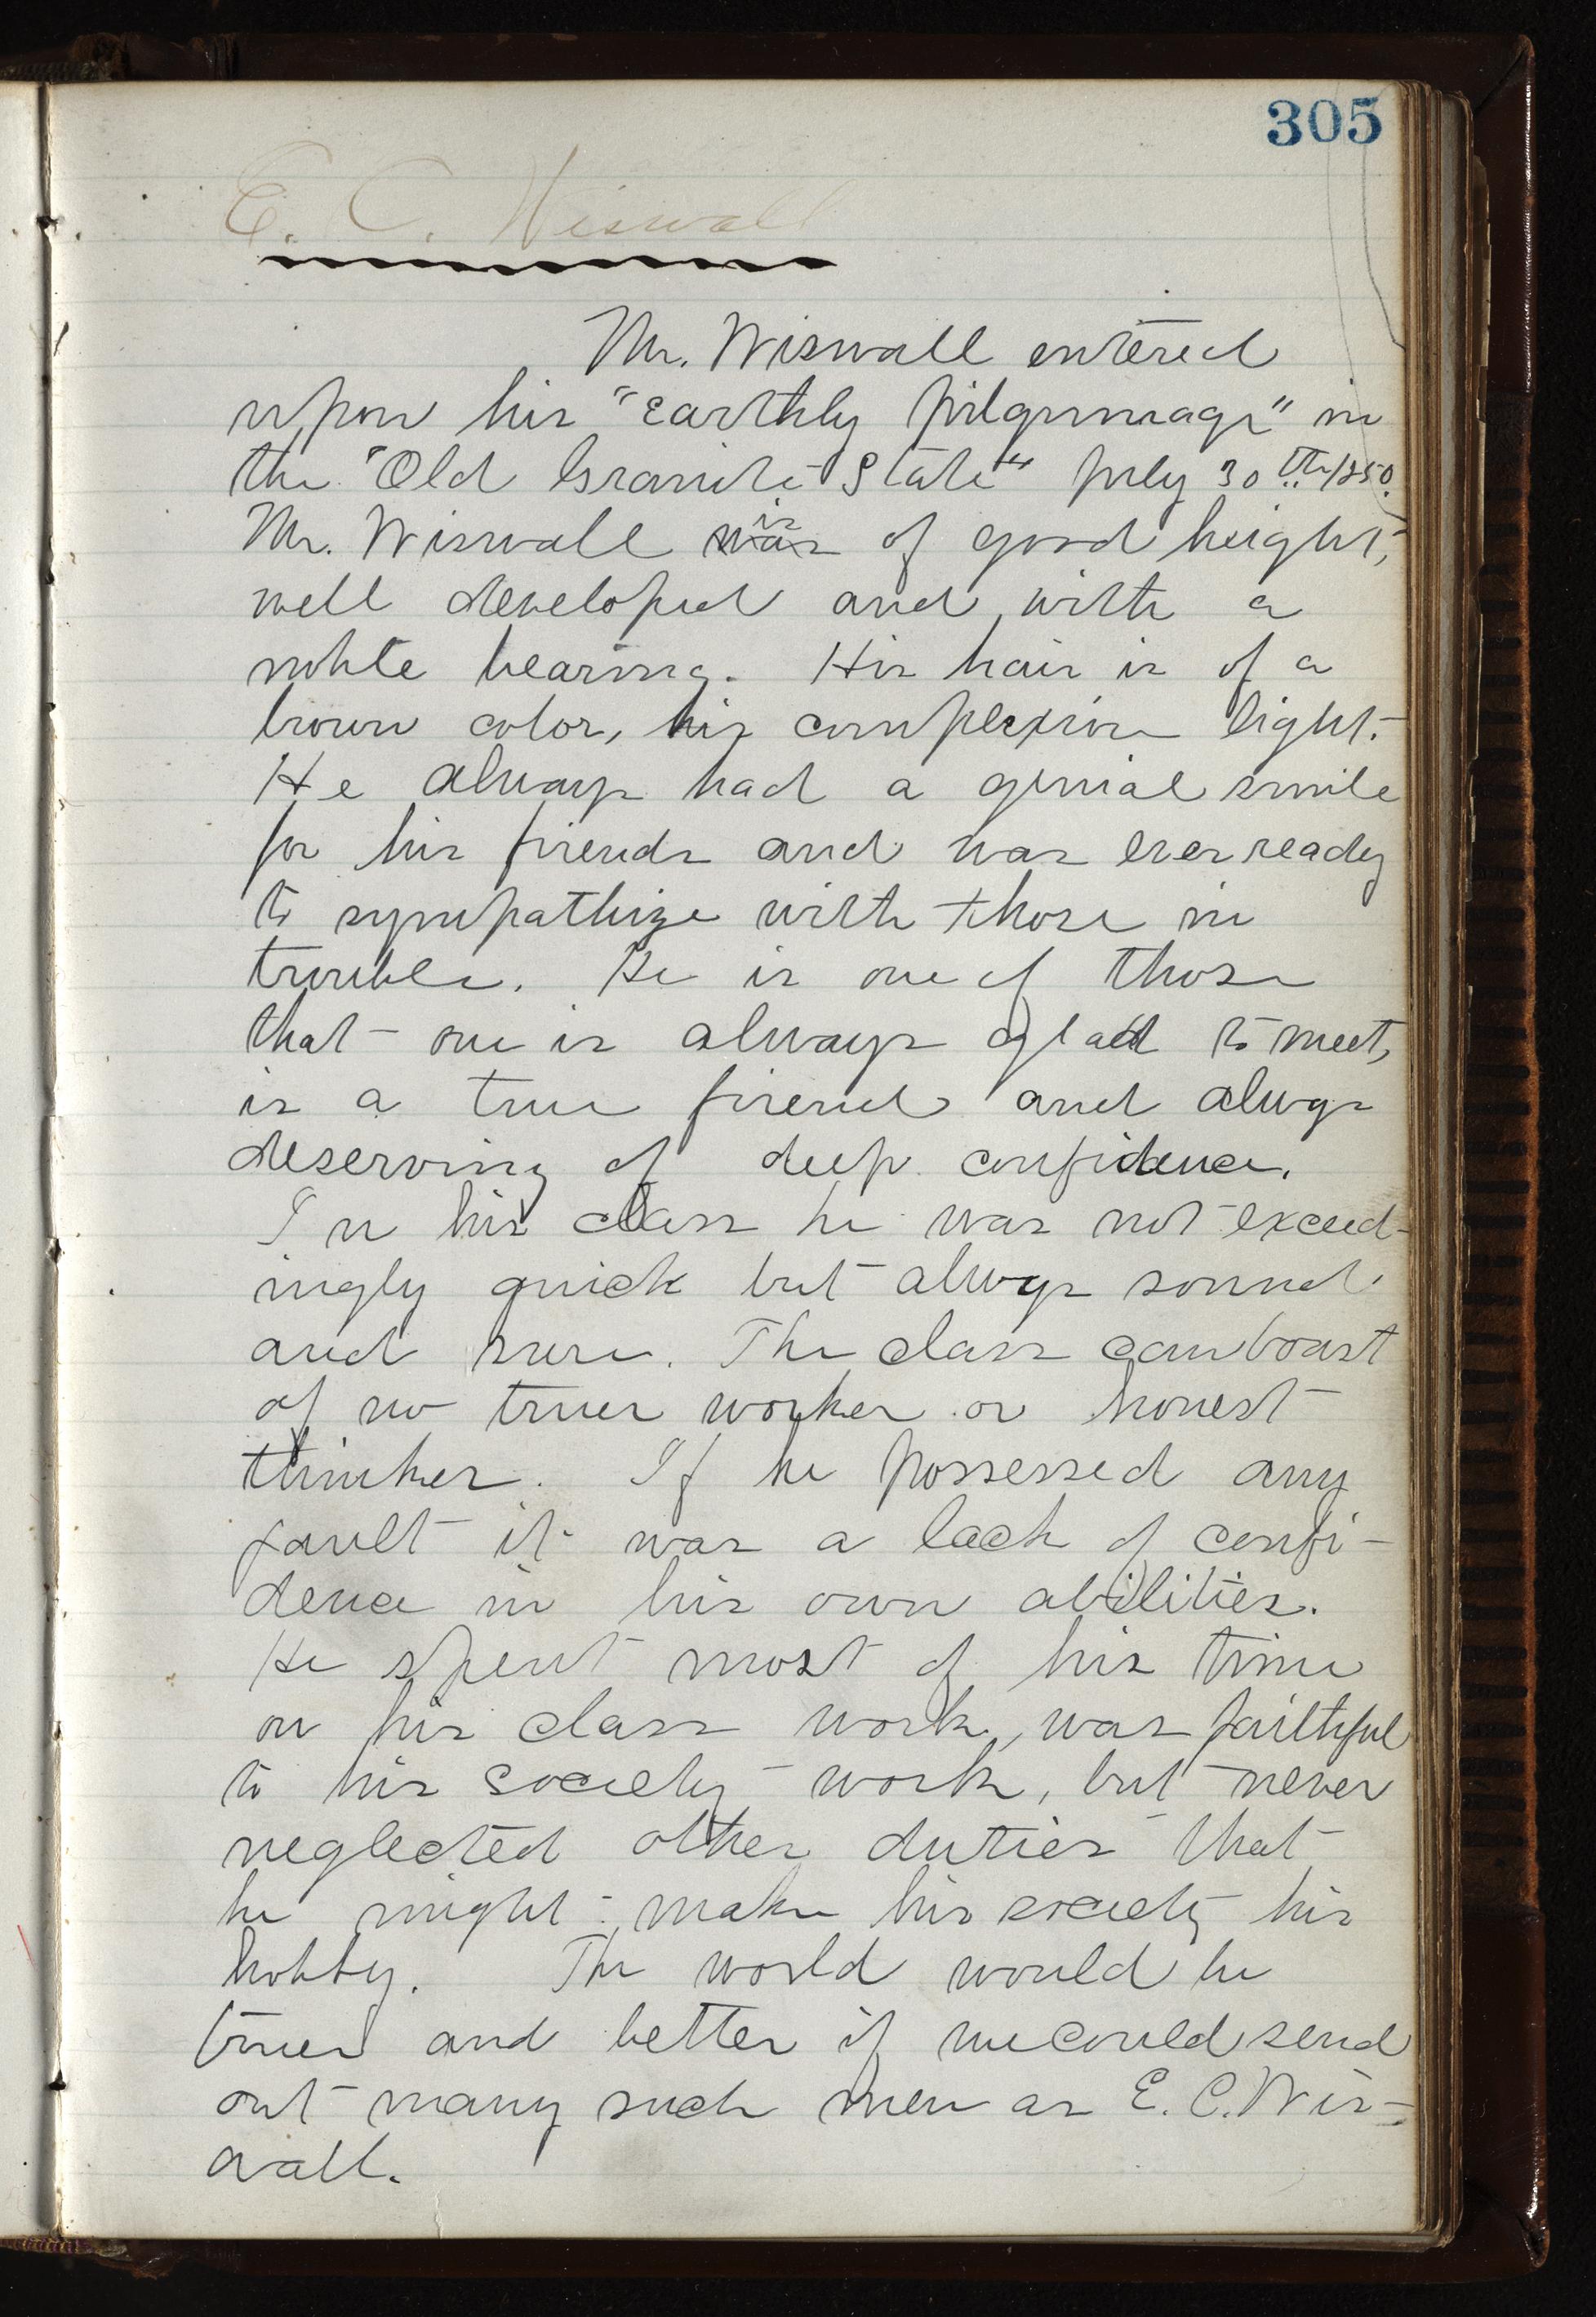 305
E. C. Wiswall
Mr. Wiswall entered
upon his "Earthly pilgrimage" in
the "Old Granite State" July 30th 1850.
Mr. Wiswall was is of good height,
well developed and with a
noble bearing. His hair is of a
brown color, his complexion light.
He always had a genial smile
for his friends and was ever ready
to sympathize with those in
trouble. He is one of those
that one is always glad to meet,
is a true friend and alwys
deserving of deep confidence.
In his class he was not exceed-
ingly quick but alwys sound
and sure. The class can boast
of no truer worker or honest
thinker. If he possessed any
fault it was a lack of confi-
dence in his own abilities.
He spent most of his time
on his class work, was faithful
to his society work, but never
neglected other duties that
he might make his society his
hobby. The world would be
truer and better if we could send
out many such men as E. C. Wis-
wall.